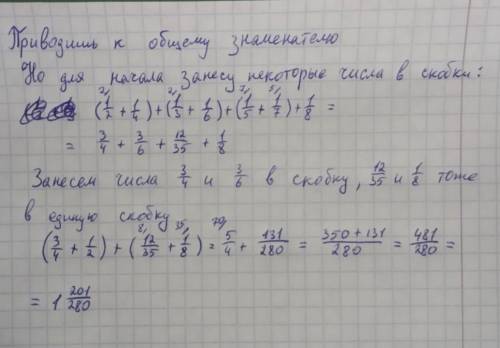 Приводишь к общему знаменателю
Но для начала занесу некоторые числа в скобки:
(1/2 + 1/4) + (1/3 + 1/6) + (1/5 + 1/7) + 1/8 =
= 3/4 + 3/6 + 12/35 + 1/8
Занесем числа 3/4 и 3/6 в скобку, 12/35 и 1/8 тоже
в единую скобку
(3/4 + 1/2) + (12/35 + 1/8) = 5/4 + 131/280 = 350 + 131/280 = 481/280 =
= 1 201/280